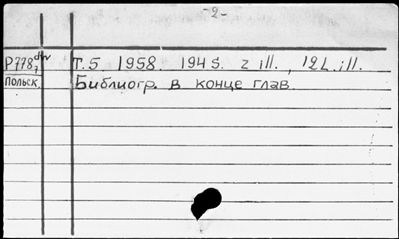 -2-
P778,
Т.5 1958. 194 S. z ill., 12 L. ill.
Польск.
Библиогр. в конце глав.